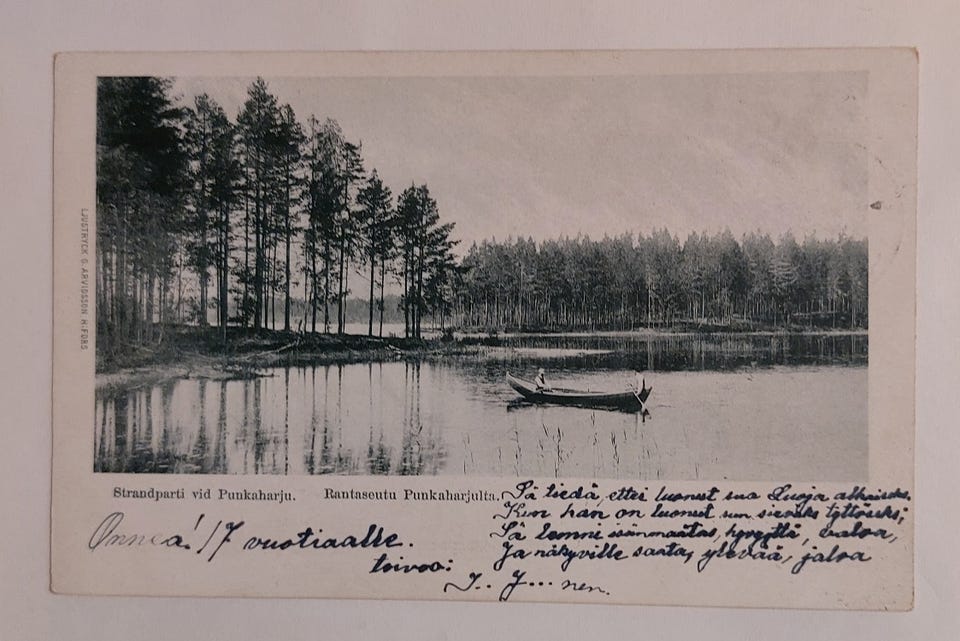 LJUSTRYCK G. ARVIDSSON H:FORS
Strandparti vid Punkaharju. Rantaseutu Punkaharjulta.
Sä tiedä, ettei luonut sua Luoja
Kun hän on luonut sun tytöseks;
Sä lemmi isänmaatas, hyvyyttä, valoa,
Ja näkyville saata, ylevää, jaloa
Onnea! 17 vuotiaalle.
toivoo:
J.. J... nen.